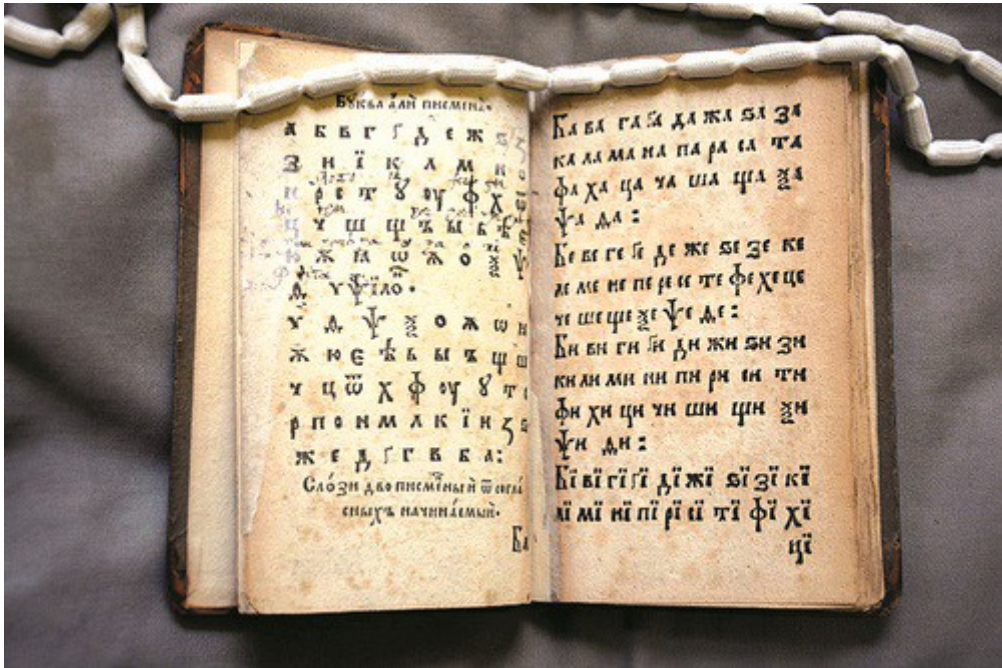 Бꙋ́ква а҆лѝ писмена̀.
а б в г ґ д е ж ѕ ꙁ
з и ї к л м н о
п р с т ꙋ оу ф х
ц ч ш щ ъ ы ь ѣ є
ю ѫ ꙗ ѡ ѧ о ѯ ѱ
ѳ ѵ ѱїло.
ѵ ѳ ѱ ѯ о ѧ ѡ ꙗ
ѫ ю є ѣ ь ы ъ щ ш
ч ц ѿ х ф оу ꙋ т с
р п о н м л к ї и ꙁ ѕ
ж е д ґ г в б а:
Сло́зи двописме́нныи ѿ согла́
сныхъ начина́емыи.
Ба
Ба ва га ґа да жа ѕа за
ка ла ма на па ра са та
фа ха ца ча ша ща ѯа
ѱа ѳа:
Бе ве ге ґе де же ѕе зе ке
ле ме не пе ре се те фе хе це
че ше ще ѯе ѱе ѳе:
Би ви ги ґи ди жи ѕи зи
ки ли ми ни пи ри си ти
фи хи ци чи ши щи ѯи
ѱи ѳи:
Бї вї гї ґї дї жї ѕї зї кї
лї мї нї пї рї сї тї фї хї
цї